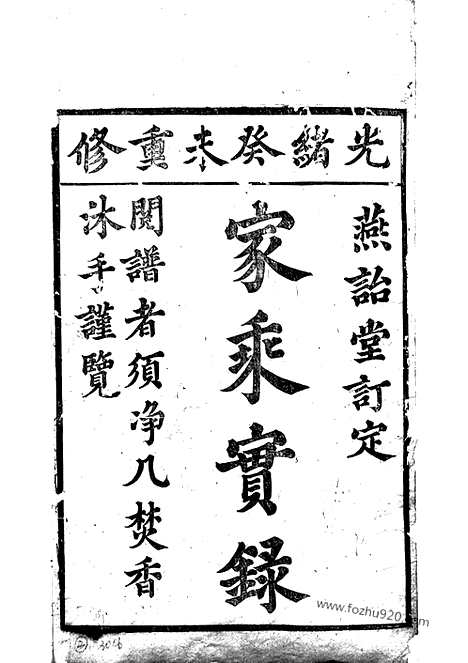 光緒癸未重修
燕詒堂訂定
家乘實錄
閱譜者須净几焚香
沐手謹覽
www.fozhu920.com
3016